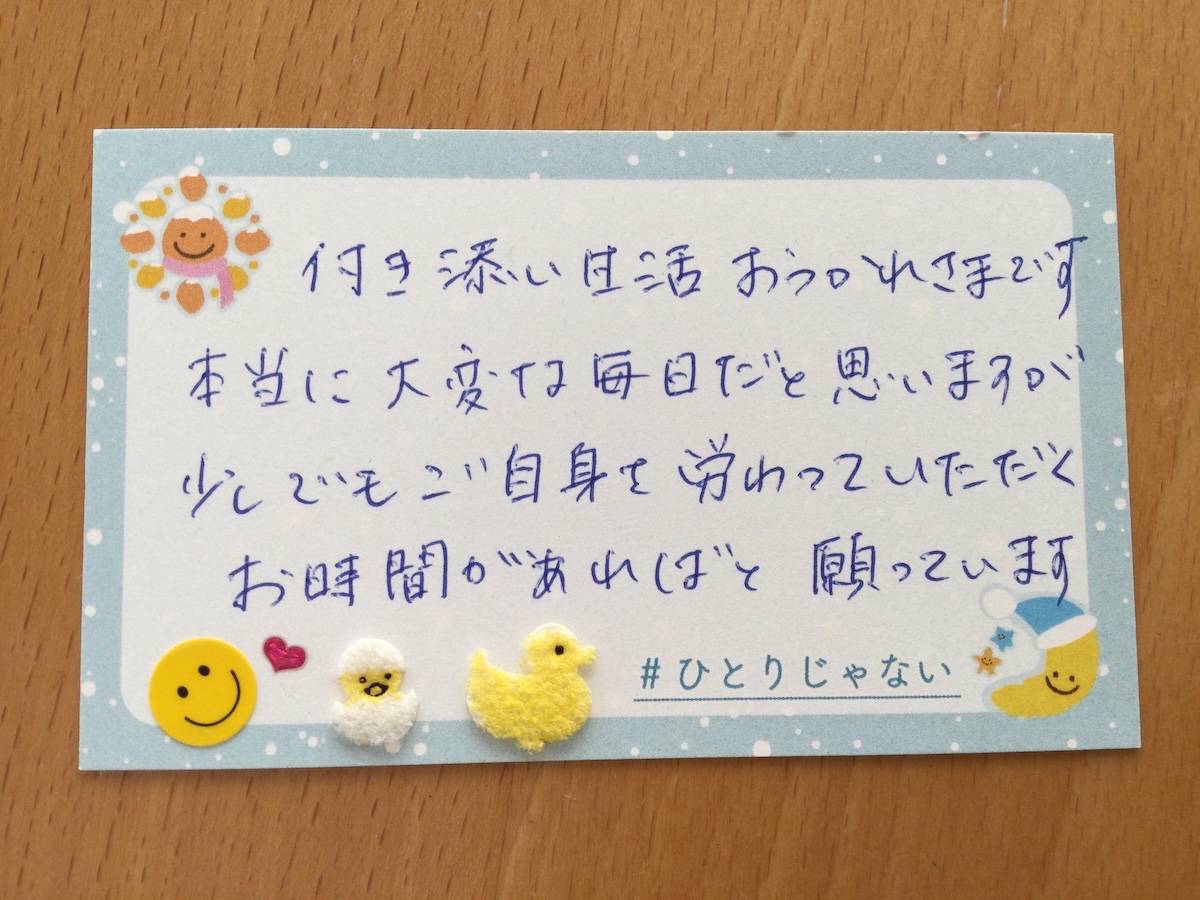 付き添い生活おつかれさまです
本当に大変な毎日だと思いますが
少しでもご自身を労わっていただく
お時間があればと願っています
#ひとりじゃない